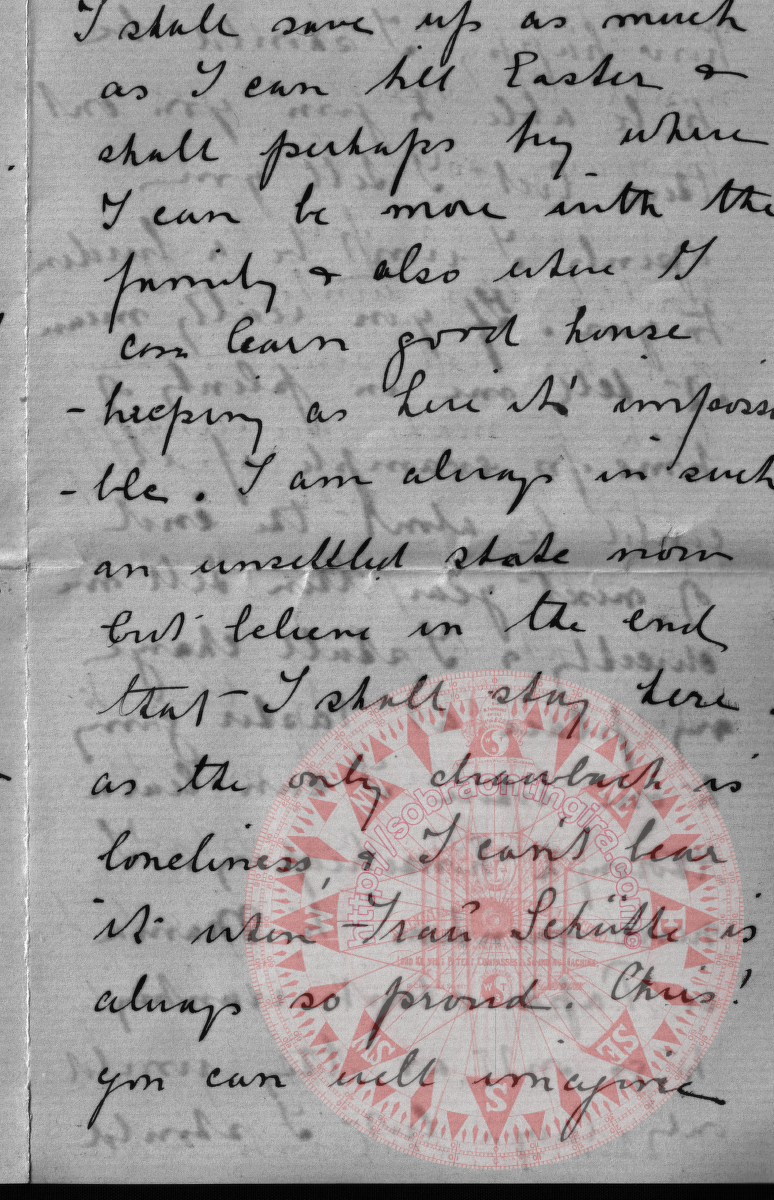 I shall save up as much
as I can till Easter &
shall perhaps try where
I can be more with the
family & also where I
can learn good house
- keeping as here it's impossi
- ble. I am always in such
an unsettled state now
but believe in the end
that I shall stay here.
as the only drawback is
loneliness, & I can't bear
it when Frau Schütte is
always so proud. Chris!
you can well imagine
http://sobrachtingira.com